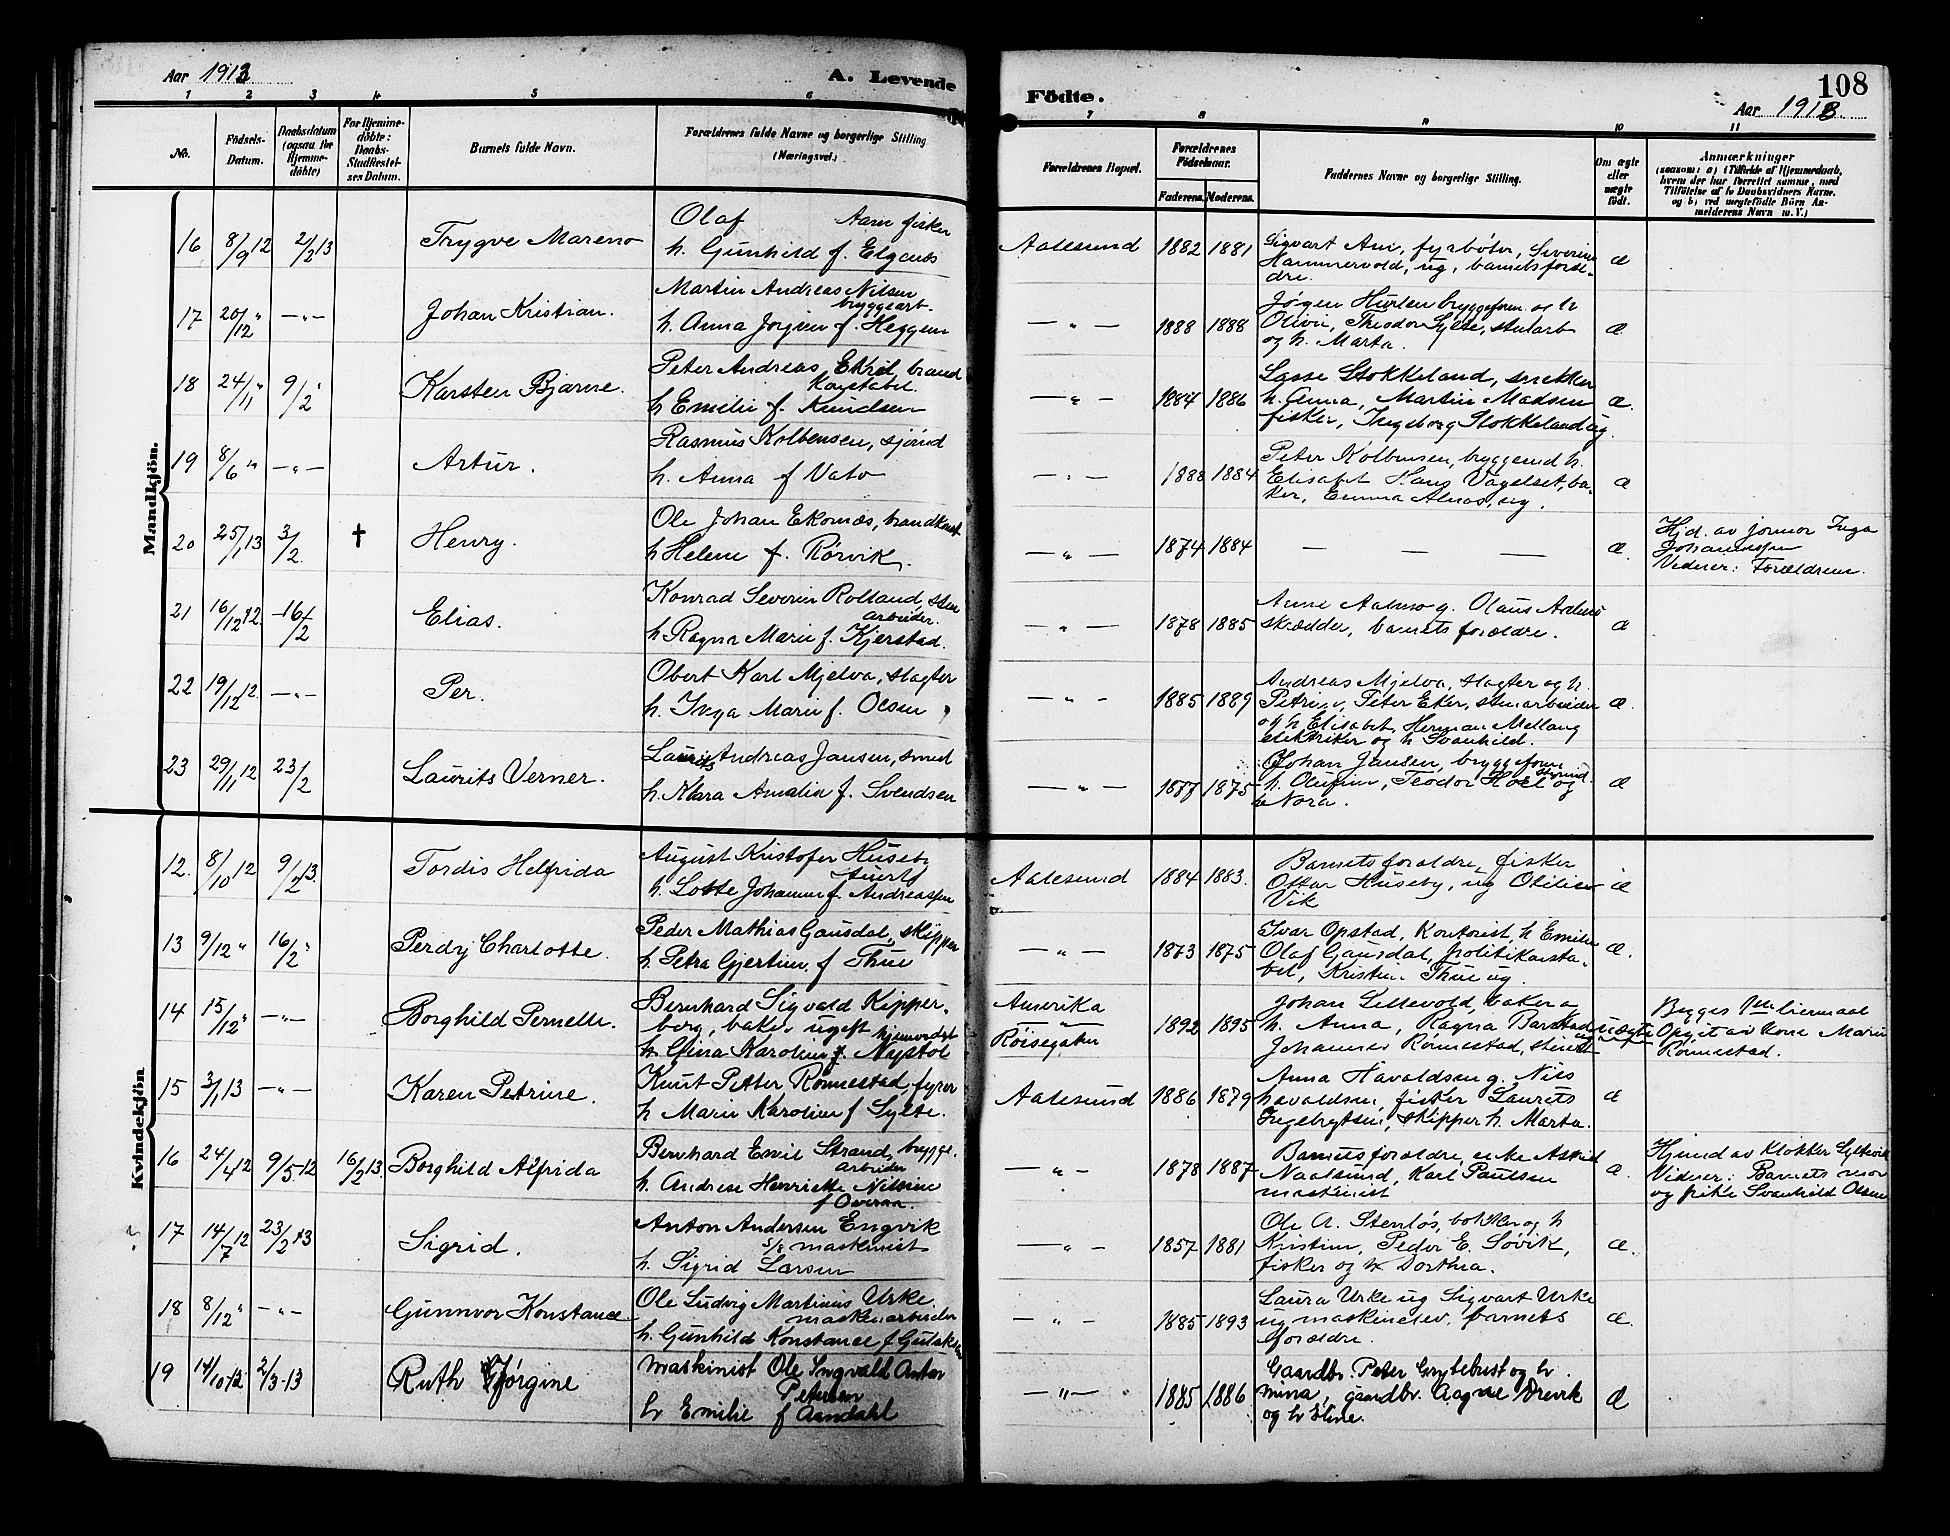 Aar 1913
A. Levende
Födte.
108
Aar 1913.
1 2 3 4 5 6 7 8 9 10 11
No.
Födsels-
Datum.
Daabsdatum
(ogsaa for
Hjemme-
döbte)
For Hjemme-
döbte:
Daabs-
Stadfæstel-
ses Datum.
Barnets fulde Navn.
Forældrenes fulde Navne og borgerlige Stilling
(Næringsvei.)
Forældrenes Bopæl.
Forældrenes
Födselsaar.
Faderens. Moderens.
Faddernes Navne og borgerlige Stilling.
Om ægte
eller
uægte
födt.
Anmærkninger
(saasom: a) i Tilfælde af Hjemmedaab,
hvem der har forrettet samme, med
Tilföielse af to Daabsvidners Navne,
og b) ved uægtefödte Börn An-
melderens Navn m. V.)
Mandkjön.
16 8/9 12 2/2 13 Trygve Mareno
Olaf Aam fisker
h. Gunhild f. Elgenes
Aalesund 1882 1881
Sigvart Am, fyrbøter, Severine
Hammervold, ug, barnets foræl-
dre.
æ
17 20/12 " — " — Johan Kristian.
Martin Andreas Nilsen
bryggearb.
h. Anna Jorgine f. Heggem
— " — 1888 1888
Jørgen Hurlen bryggeform. og h
Olivie, Theodor Sylte, stenarb
og h. Marta.
æ
18 24/11 " 9/2 " Karsten Bjarne.
Peter Andreas Ekreit, brand
konstabel
h Emilie f. Knudsen
— " — 1884 1886
Lasse Stokkeland, snekker
h. Anna, Martin Madsen
fisker, Ingeborg Stokkeland ug.
æ.
19 8/6 " — " — Artur.
Rasmus Kolbensen, sjømd
h. Anna f Vato
— " — 1888 1884
Peter Kolbensen, bryggemd h.
Elisabet Hans Vågelset, ba-
ker, Emma Alnes, ug.
æ
20 25/1 13 3/2. † Henry.
Ole Johan Ekornæs, brandkonst
h Helene f. Rørvik.
— " — 1874 1884 — — — æ.
Hjd. av jormor Inga
Johannessen
Vidner: Forældrene.
21 16/12 12. 16/2 Elias.
Konrad Severin Rolland, sten
arbeider.
h Ragna Marie f. Kjerstad.
— " — 1878 1885
Anne Aalenes g. Olaus Aalenes
skrædder, barnets forældre.
æ
22 19/12 12. — " — Per.
Obert Karl Mjelva, slagter
h. Inga Marie f. Olsen
— " — 1885 1889
Andreas Mjelva, slagter og h.
Petrine, Peter Eker, stenarbeider
og h Elisabet, Herman Mellang
elektriker og h Svanhild.
æ.
23 29/11 12 23/2 Laurits Verner.
Laurits Andreas Jansen, smed
h. Klara Amalie f. Svendsen
— " — 1877 1875
Johan Jansen, bryggeform
h. Olufine, Teodor Hoel styrmd og
h Nora.
æ
Kvindekjön
12. 8/10 12 9/2 13. Tordis Helfrida
August Kristofer Huseby
h. Lotte Johanne f. Andreassen
Aalesund 1884 1883.
Barnets foraldre, fisker
Ottar Huseby, ug Otilise
Vik
æ
13 9/12 " 16/2 " Perdy Charlotte.
Peder Mathias Gausdal, skipper
h. Petra Gjertine f Thue
— " — 1873 1875
Ivar Opstad, Kontorist, h Emilie
Olaf Gausdal, politikonsta-
bel, Kristine Thue ug
æ.
14 15/12 " — " — Borghild Pernelle.
Bernhard Sigvald Kipper-
berg, baker ugift
Gina Karoline f. Nystöl
Amerika
Röisegaten
1892 1895
Johan Lillevold, baker
h. Anna, Ragna Barstad
Johannes Rönnestad,
uægte
Begges 1ste leiermaal
Opgit av kone Marie
Rönnestad.
15 3/1 13 — " — Karen Petrine.
Knut Petter Rönnestad, fyrer
h Marie Karoline f Sylte.
Aalesund 1886 1879
Anna Havaldsen g. Nils
havaldsen, fisker Laurits
Ingebrigtsen, skipper h. Marta.
æ
16 24/4 12 9/5 12 16/2 13. Borghild Alfrida
Bernhard Emil Strand, brygge-
arbeider
h. Andrese Henriette Nilsine
f Overaa.
— " — 1878 1887
Barnets foraldre, enke Astrid
Naalsund, Karl Paulsen
maskinist
æ.
Hjemd av Klokker Syltevik
Vidner: Barnets mor
og pike Svanhild Olsen
17 14/7 12 23/2 13 Sigrid.
Anton Andersen Engvik
s/s maskinist
h. Sigrid Larsen
— " — 1857 1881
Ole A. Stenlös, bøkker og h
Kristine, Peder E. Søvik,
fisker og h Dorthea.
æ.
18 8/12 " — " — Gunnvor Konstance
Ole Ludvig Martinius Urke
maskinarbeider
h. Gunhild Konstance f Gulaksen
— " — 1885 1893
Laura Urke ug Sigvart Urke
ug maskinelev. barnets
forældre.
æ.
19 14/10-12 2/3-13 Ruth Jørgine
Maskinist Ole Ingvald Anton
Petersen
h Emilie f Aandahl
— " — 1885 1886
Gaardbr. Peter Grytebust og h
Mina, gaardbr. Aagne Drevik
og h Stine.
æ